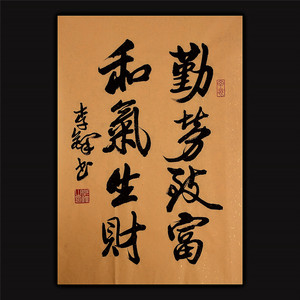 勤劳致富
和氣生財
李輝书